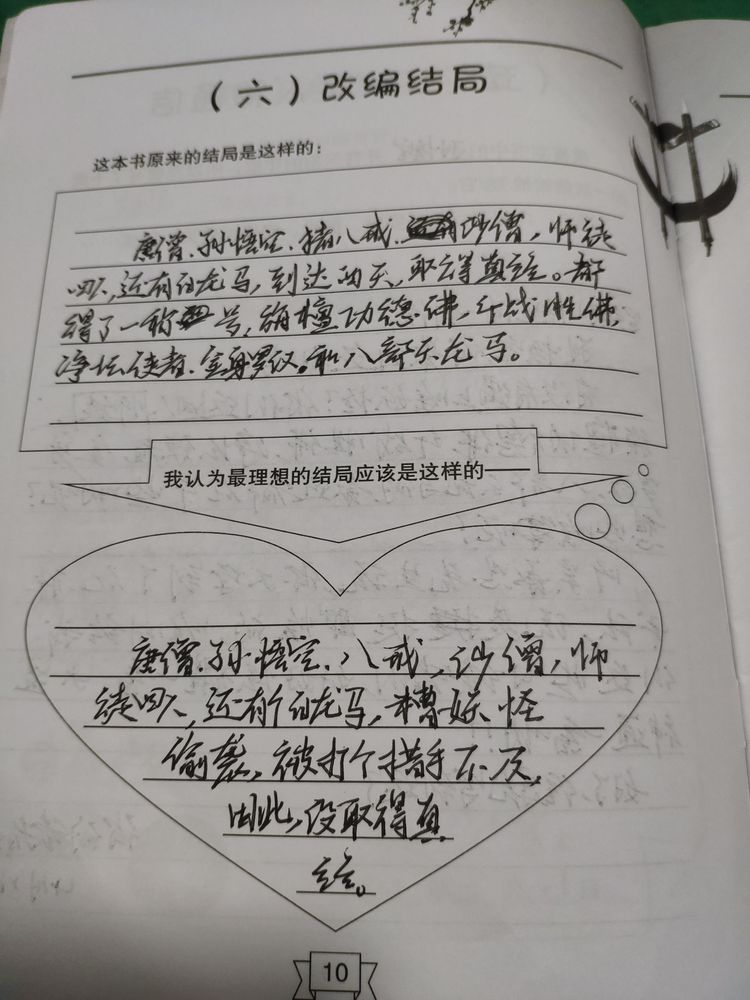 （六）改编结局
这本书原来的结局是这样的：
唐僧、孙悟空、猪八戒、沙僧，师徒
四人，还有白龙马，到达西天，取得真经。都
得了一称号，旃檀功德佛，斗战胜佛，
净坛使者、金身罗汉。和八部天龙马。
我认为最理想的结局应该是这样的——
唐僧、孙悟空、八戒，沙僧，师
徒四人，还有个白龙马，糟妖怪
偷袭，被打个措手不及，
因此，没取得真
经。
10